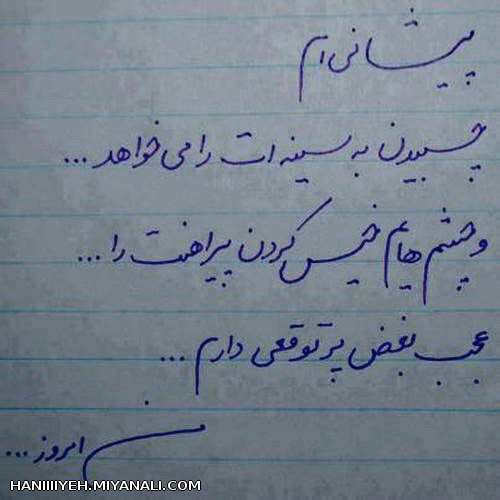 پیشانی ام
چسبیدن به سینه ات را می خواهد ...
و چشم هایم خیس کردن پیراهنت را ...
عجب بغض پرتوقعی دارم ...
من امروز ...
HANIIIIYEH.MIYANALI.COM